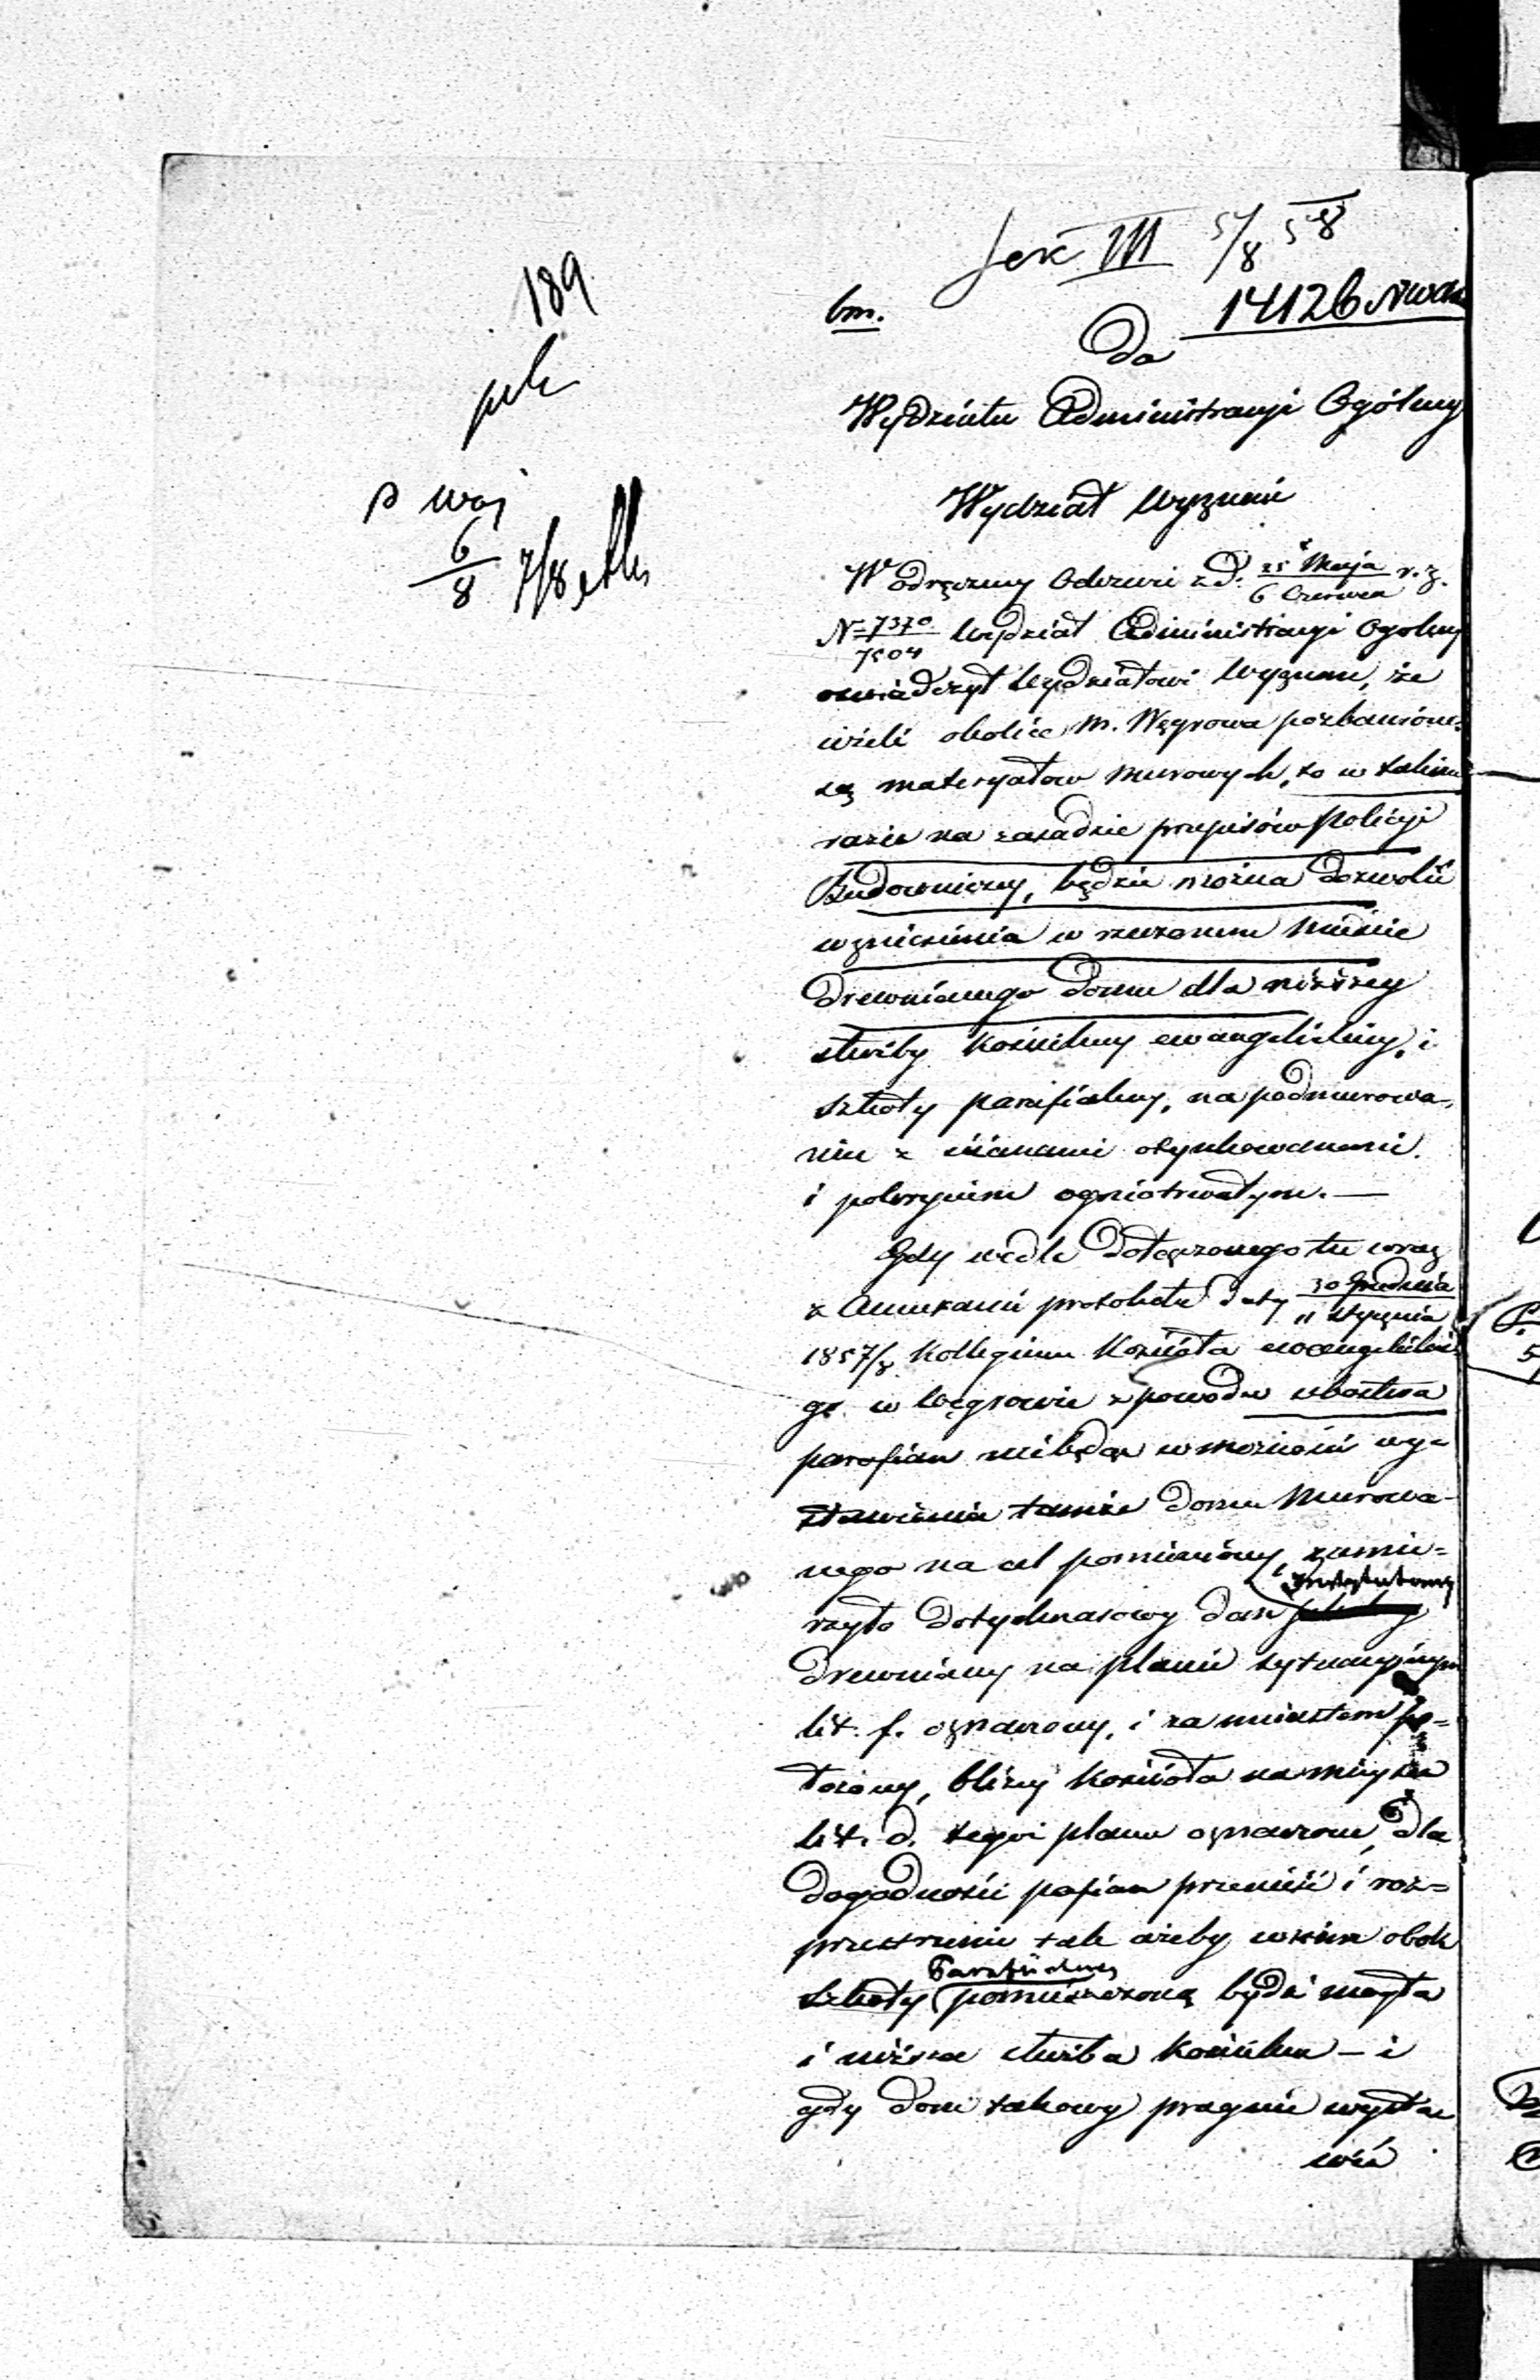 189
Sek III 5/8 58
14126
bm.
Do
Wydziału Administracyi Ogólney
6/8 7/8
Wydział Wyznań
W odręczney Odezwie z d. 25 Maja / 6 Czerwca r. z.
N= 7370 / 7504 Wydział Administracyi Ogolney
oswiadczył Wydziałowi Wyznań, że
ieżeli okolice M. Węgrowa pozbawione
są materyałow murowych, to w takim
razie na zasadzie przepisów Policyi
Budowniczey, będzie można dozwolić
wzniesienia w rzeczonem mieście
drewnianego domu dla niższey
służby kościelney ewangelickiey, i
szkoły parafialney, na podmurowa-
niu z ścianami otynkowanemi
i pokryciem ogniotrwałym. —
Gdy wedle dołączonego tu wraz
z Annexami protokołu daty 30 Grudnia / 11 Stycznia
1857/8 Kollegium Kościoła ewangelickie
go w Węgrowie z powodu ubóstwa
parafian niebędąc w możności wy=
stawienia tamże domu murowa-
nego na cel pomieniony, zamie=
rzyło dotychczasowy dom Instytutowy
drewniany na planie sytuacyjnym
lit. f. oznaczony, i za miastem po=
łożony, bliżey Kościoła na mieysce
lit. d. tegoż planu oznaczone, dla
dogodności pafian przenieść i roz=
przestrzenić tak ażeby w nim obok
szkoły Parafialney pomieszczoną bydź mogła
i niższa służba Kościelna — i
gdy dom takowy pragnie wysta
wić